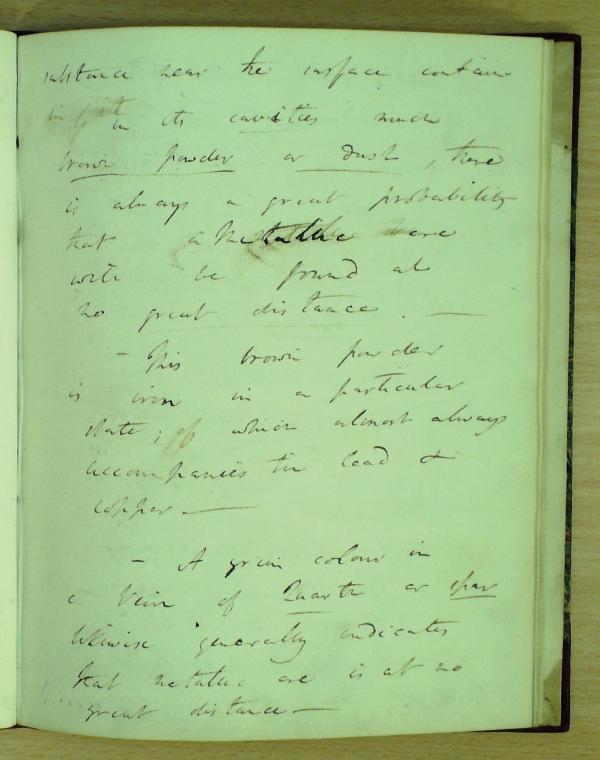 substance near the surface contains
in its cavities much
brown powder or dust, there
is always a great probability
that a Metallic here
will be found at
no great distance. —
— This brown powder
is iron in a particular
state; which almost always
accompanies tin lead &
copper —
— A green colour in
a Vein of Quartz or spar
likewise generally indicates
that metallic ore is at no
great distance —